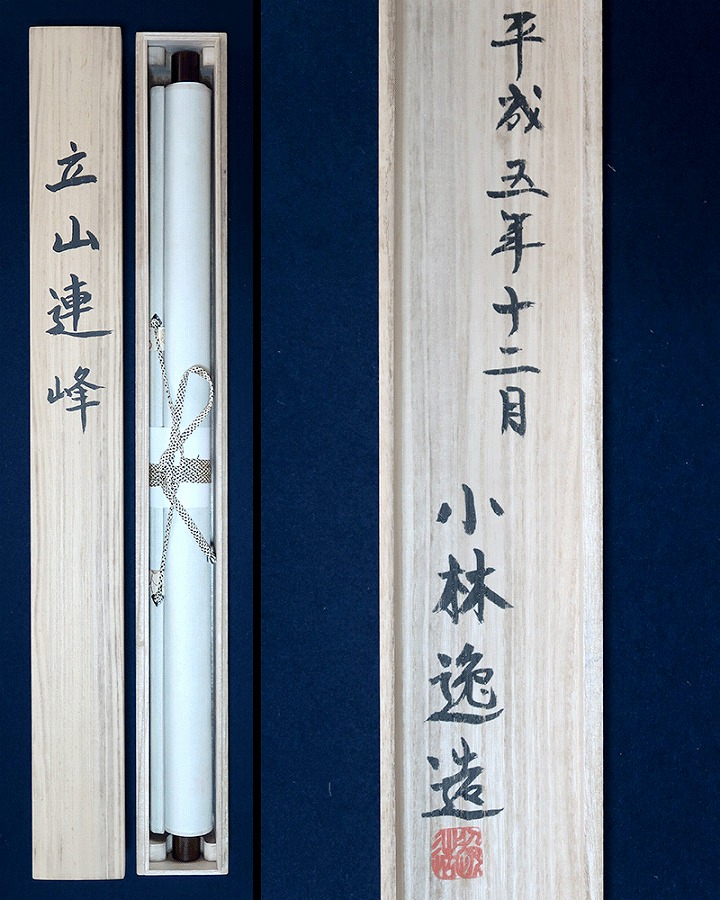 立山連峰
平成五年十二月
小林逸造